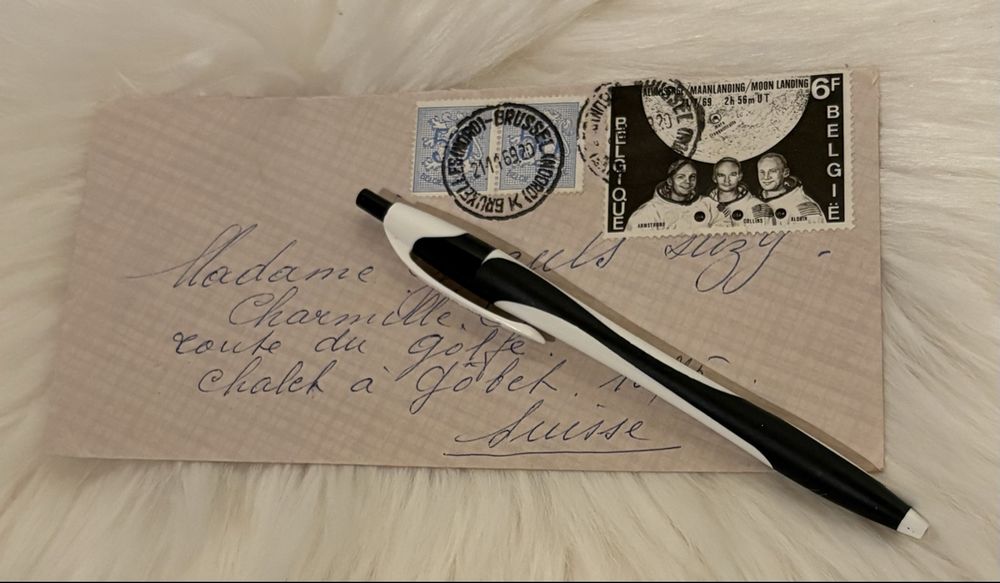 BRUXELLES (NOORD) - BRUSSEL (NOORD) X
21 11 69 20
MAANLANDING/MOON LANDING
/69 2h 56m UT
6F
BELGIQUE
BELGIË
ARMSTRONG
COLLINS
ALDRIN
Madame Suzy.
Charmille
route du golfe.
chalet à Gobet.
Suisse